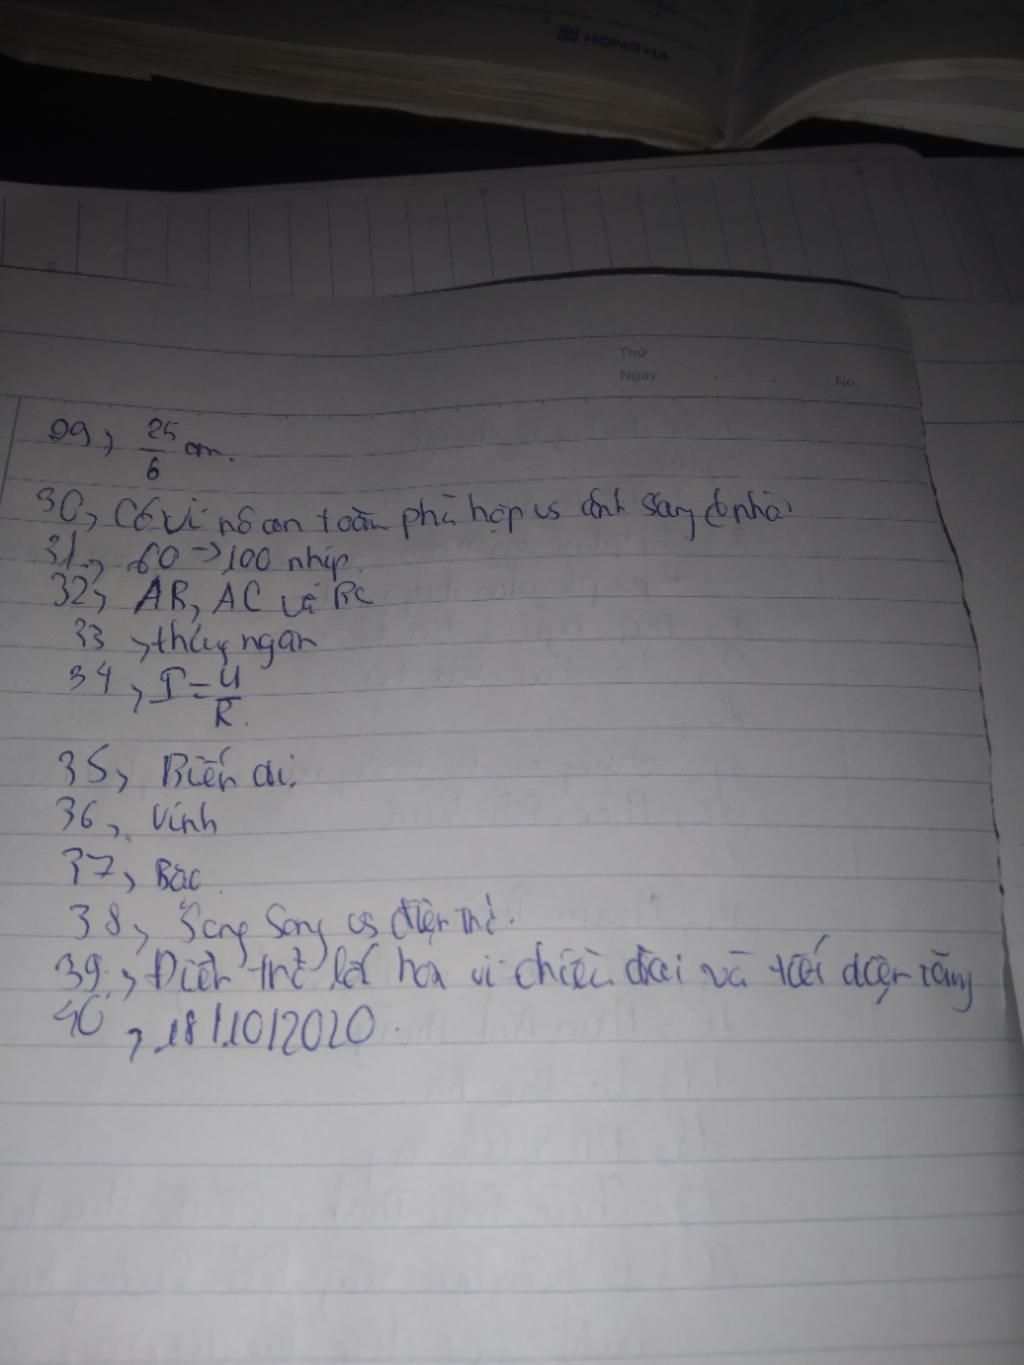 HONG HA
Thứ
Ngày
No.
29, 25/6 cm.
30, Có vì nó an toàn phù hợp vs ánh sáng ở nhà
31, 60 → 100 nhịp.
32, AB, AC và BC
33, thủy ngân
34, I = U/R.
35, Biến đổi
36, Vinh
37, Bắc
38, Song Song vs điện trở.
39, Điện trở vì chiều dài và tiết diện răng
40, 18/10/2020.